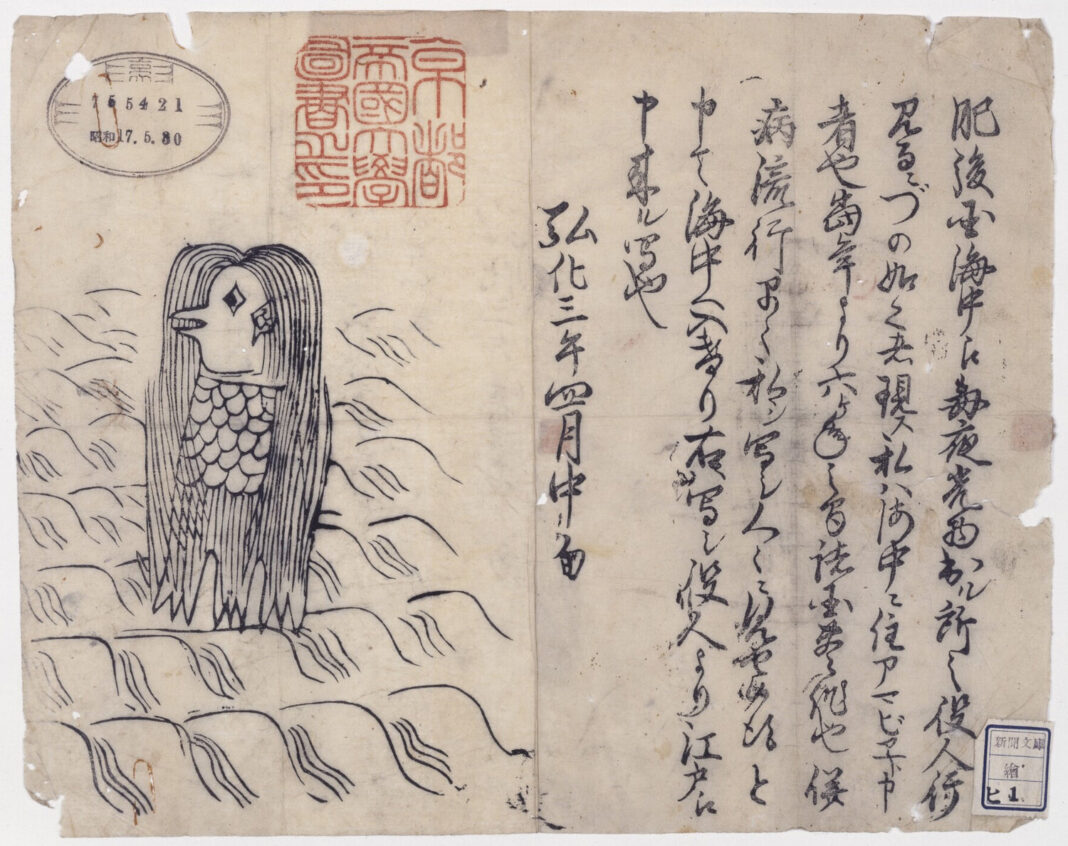 肥後国海中江毎夜光物出ル所之役人行
見るニづの如之者現ス私ハ海中ニ住アマビヱト申
者也当年より六ヶ年之間諸国豊作也併
病流行早々私シ写シ人々ニ見せ候得と
申て海中へ入けり右写シ役人より江戸江
申来ル写也
弘化三年四月中旬
京都
帝國大學
圖書之印
昭和17.5.30
新聞文庫
繪
ヒ 1